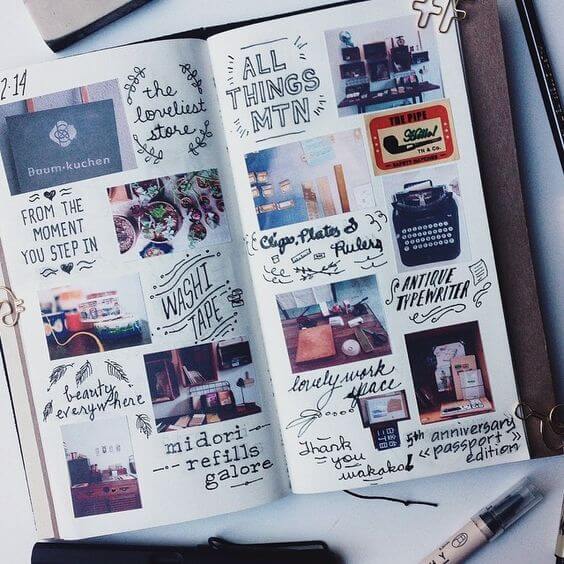 2.14
Baum-kuchen
the
loveliest
store
FROM THE
MOMENT
YOU STEP IN
WASHI
TAPE
beauty
everywhere
midori
refills
galore
ALL
THINGS
MTN
THE PIPE
TN & Co.
Clips, Plates &
Rulers
ANTIQUE
TYPEWRITER
lovely work
space
Thank
you
wakako!
5th anniversary
"passport"
edition